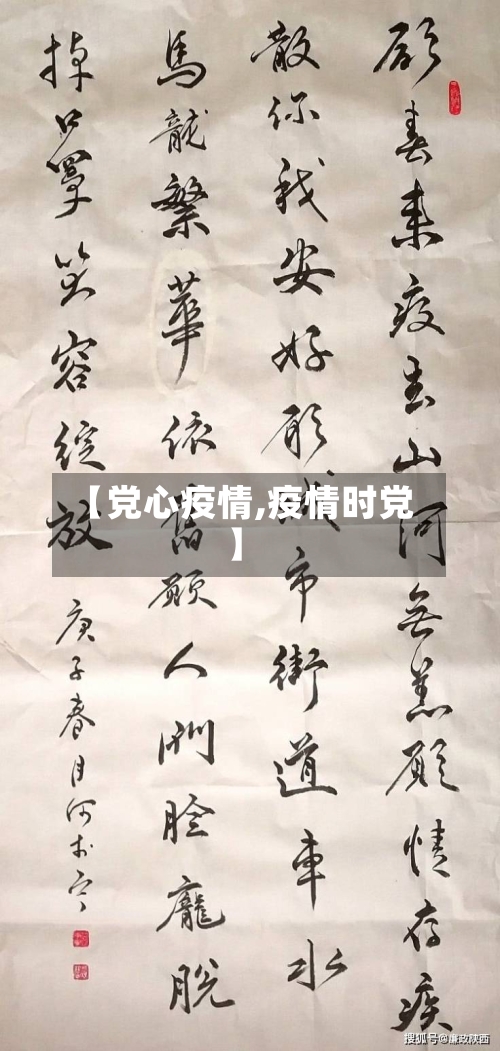 願春来疫去山河無恙願情存疾
散你我安好願城市街道車水
馬龍繁華依舊願人們臉龐脫
掉口罩笑容綻放
庚子春月
【党心疫情,疫情时党
】
搜狐号@廉政陕西